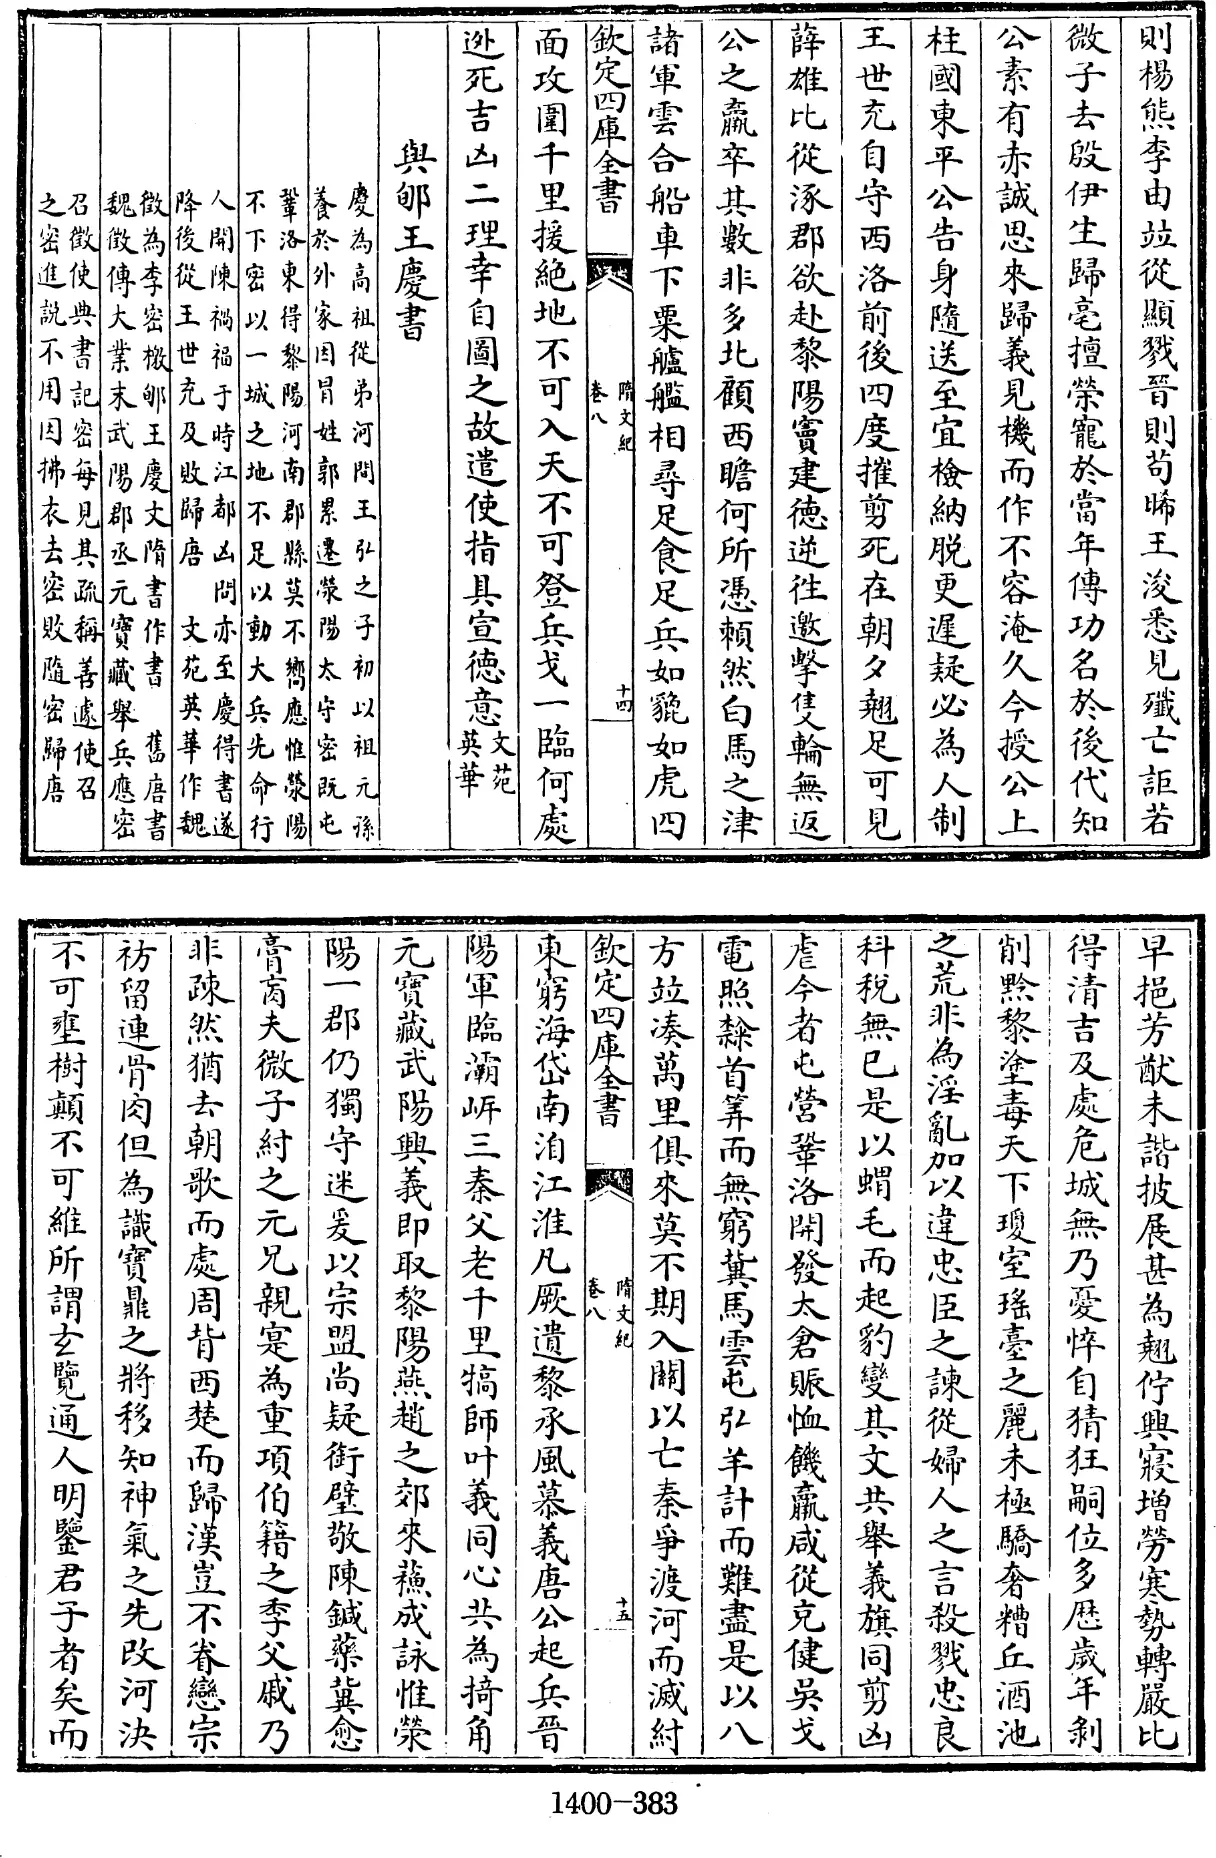 則楊熊李由竝從顯戮晉則苟晞王浚悉見殲亡詎若
微子去殷伊生歸亳擅榮寵於當年傳功名於後代知
公素有赤誠思來歸義見機而作不容淹久今授公上
柱國東平公告身隨送至宜檢納脱更遲疑必為人制
王世充自守西洛前後四度摧剪死在朝夕翹足可見
薛雄比從涿郡欲赴黎陽竇建德逆徃邀擊隻輪無返
公之羸卒其數非多北顧西瞻何所憑頼然白馬之津
諸軍雲合船車下粟艫艦相尋足食足兵如貔如虎四
欽定四庫全書
隋文紀
卷八
十四
面攻圍千里援絶地不可入天不可登兵戈一臨何處
逃死吉凶二理幸自圖之故遣使指具宣德意文苑
英華
與郇王慶書
慶為高祖從弟河間王弘之子初以祖元孫
養於外家因冒姓郭累遷滎陽太守密既屯
鞏洛東得黎陽河南郡縣莫不嚮應惟滎陽
不下密以一城之地不足以動大兵先命行
人開陳禍福于時江都凶問亦至慶得書遂
降後從王世充及敗歸唐 文苑英華作魏
徵為李密檄郇王慶文隋書作書 舊唐書
魏徵傳大業末武陽郡丞元寶藏舉兵應密
召徵使典書記密每見其疏稱善遽使召
之密進説不用因拂衣去密敗隨密歸唐
早挹芳猷未諧披展甚為翹佇興寢增勞寒勢轉嚴比
得清吉及處危城無乃憂悴自猜狂嗣位多歴歲年剥
削黔黎塗毒天下瓊室瑤臺之麗未極驕奢糟丘酒池
之荒非為淫亂加以違忠臣之諫從婦人之言殺戮忠良
科税無已是以蝟毛而起豹變其文共舉義旗同剪凶
虐今者屯營鞏洛開發太倉賑恤饑羸咸從克健吳戈
電照粲首筭而無窮冀馬雲屯弘羊計而難盡是以八
方竝湊萬里俱來莫不期入關以亡秦爭渡河而滅紂
欽定四庫全書
隋文紀
卷八
十五
東窮海岱南洎江淮凡厥遺黎承風慕義唐公起兵晉
陽軍臨灞岸三秦父老千里犒師叶義同心共為掎角
元寶藏武陽興義即取黎陽燕趙之郊來蘓成詠惟滎
陽一郡仍獨守迷爰以宗盟尚疑銜璧敬陳鍼藥冀愈
膏肓夫微子紂之元兄親寔為重項伯籍之季父戚乃
非疎然猶去朝歌而處周背西楚而歸漢豈不眷戀宗
祊留連骨肉但為識寶鼎之將移知神氣之先改河決
不可壅樹顛不可維所謂玄覽通人明鑒君子者矣而
1400-383